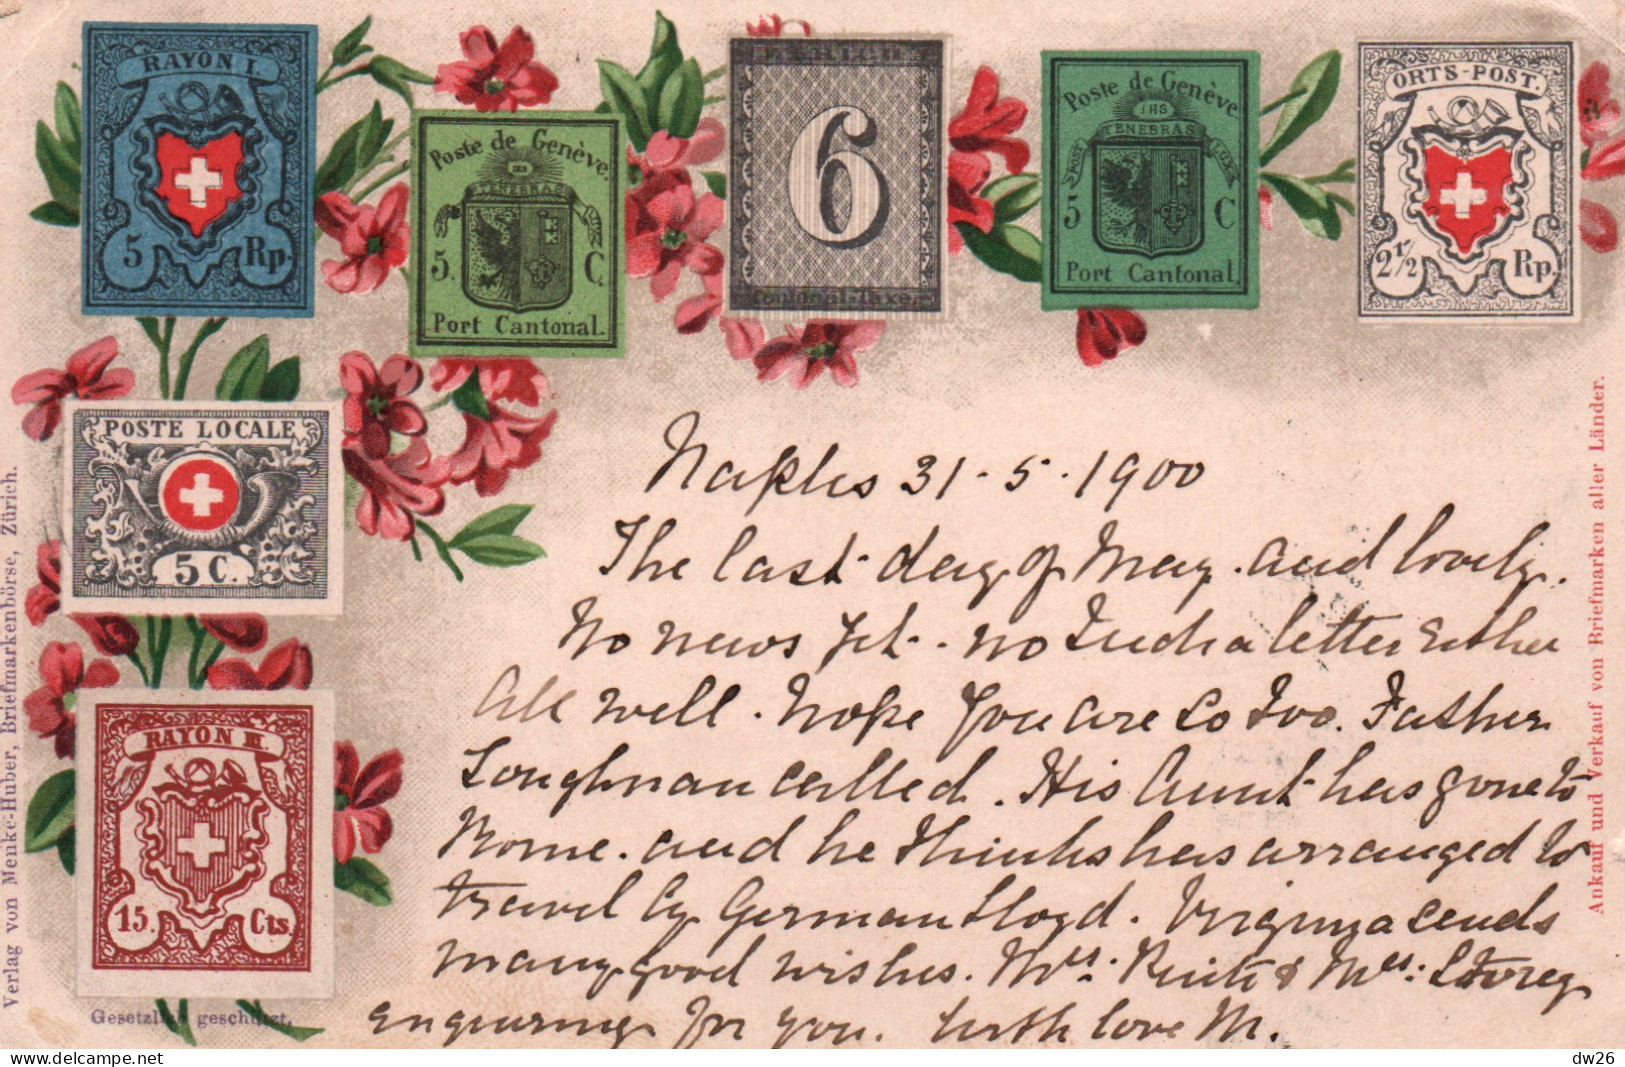 RAYON I.
5 Rp.
Poste de Genève.
TENEBRAS
5. C.
Port Cantonal.
6
Poste de Genève.
JHS
POST TENEBRAS LUX
5 C
Port Cantonal.
ORTS-POST.
2 1/2 Rp.
POSTE LOCALE
5 C.
RAYON III.
15. Cts.
Gesetzlich geschützt.
Verlag von Menke-Huber, Briefmarkenbörse, Zürich.
Ankauf und Verkauf von Briefmarken aller Länder.
Naples 31-5-1900
The last day of May and lovely.
No news yet - no India letter Either
All well. Hope you are So Too. Father
Loughnan called. His Aunt has gone to
Rome. and he thinks has arranged to
travel by German Lloyd. Virginya sends
many good wishes. Mrs. & Mrs: Storey
enquiring for you. With love M.
dw26